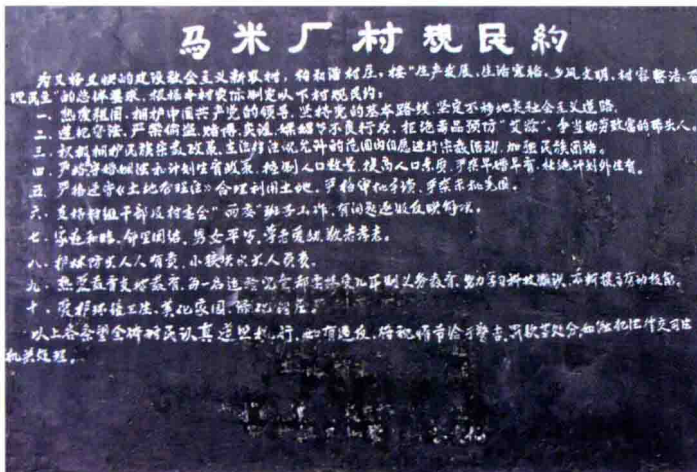 马米厂村规民约
为又好又快的建设社会主义新农村，构和谐村庄，按“生产发展、生活宽裕、乡风文明、村容整洁、管理民主”的总体要求，根据本村实际制定以下村规民约：
一、热爱祖国，拥护中国共产党的领导，坚持党的基本路线，坚定不移地走社会主义道路。
二、遵纪守法，严禁偷盗、赌博、卖淫、嫖娼等不良行为，拒绝毒品预防“艾滋”，争当勤劳致富的带头人。
三、积极拥护民族宗教政策，在法律法规允许的范围内自愿进行宗教活动，加强民族团结。
四、严格守婚姻法和计划生育政策，控制人口数量，提高人口素质，严禁早婚早育，杜绝计划外生育。
五、严格遵守《土地管理法》合理利用土地，严格审批手续，严禁未批先用。
六、支持村组干部及村委会“两委”班子工作，有问题逐级反映解决。
七、家庭和睦，邻里团结，男女平等，尊老爱幼，敬老养老。
八、护林防火人人有责，小孩
九、热爱教育支持教育，每一名适龄儿童都要接受九年制义务教育，努力学习科技知识，不断提高劳动技能。
十、爱护环境卫生，美化家园，绿化村庄。
以上各条望全体村民认真遵照执行，如有违反，将视情节给予警告、罚款等处分，如触犯法律交司法
机关处理。